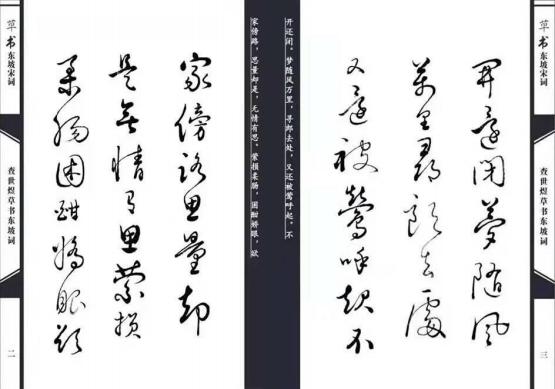 草书东坡宋词
查世煜草书东坡词
二
家傍路思量却
是無情有思縈損
柔腸困酣嬌眼欲
家傍路，思量却是，无情有思。萦损柔肠，困酣娇眼，欲
開還閉夢随風
萬里尋郎去處
又還被鶯呼起不
开还闭。梦随风万里，寻郎去处，又还被莺呼起。不
草书东坡宋词
查世煜草书东坡词
三